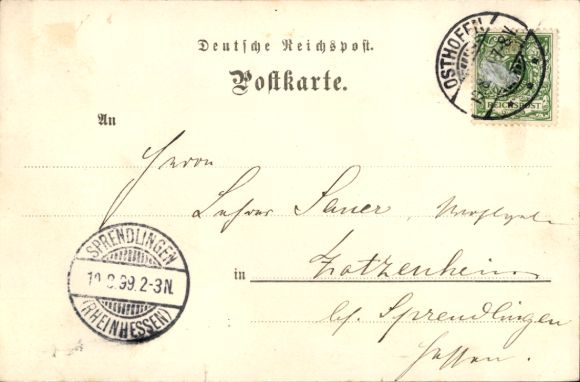 Deutsche Reichspost.
Postkarte.
OSTHOFEN
REICHSPOST
An
Herrn
Lehrer Sauer,
in Zotzenheim
SPRENDLINGEN
10.8.99.2-3N.
(RHEINHESSEN)
bei Sprendlingen
Hessen.